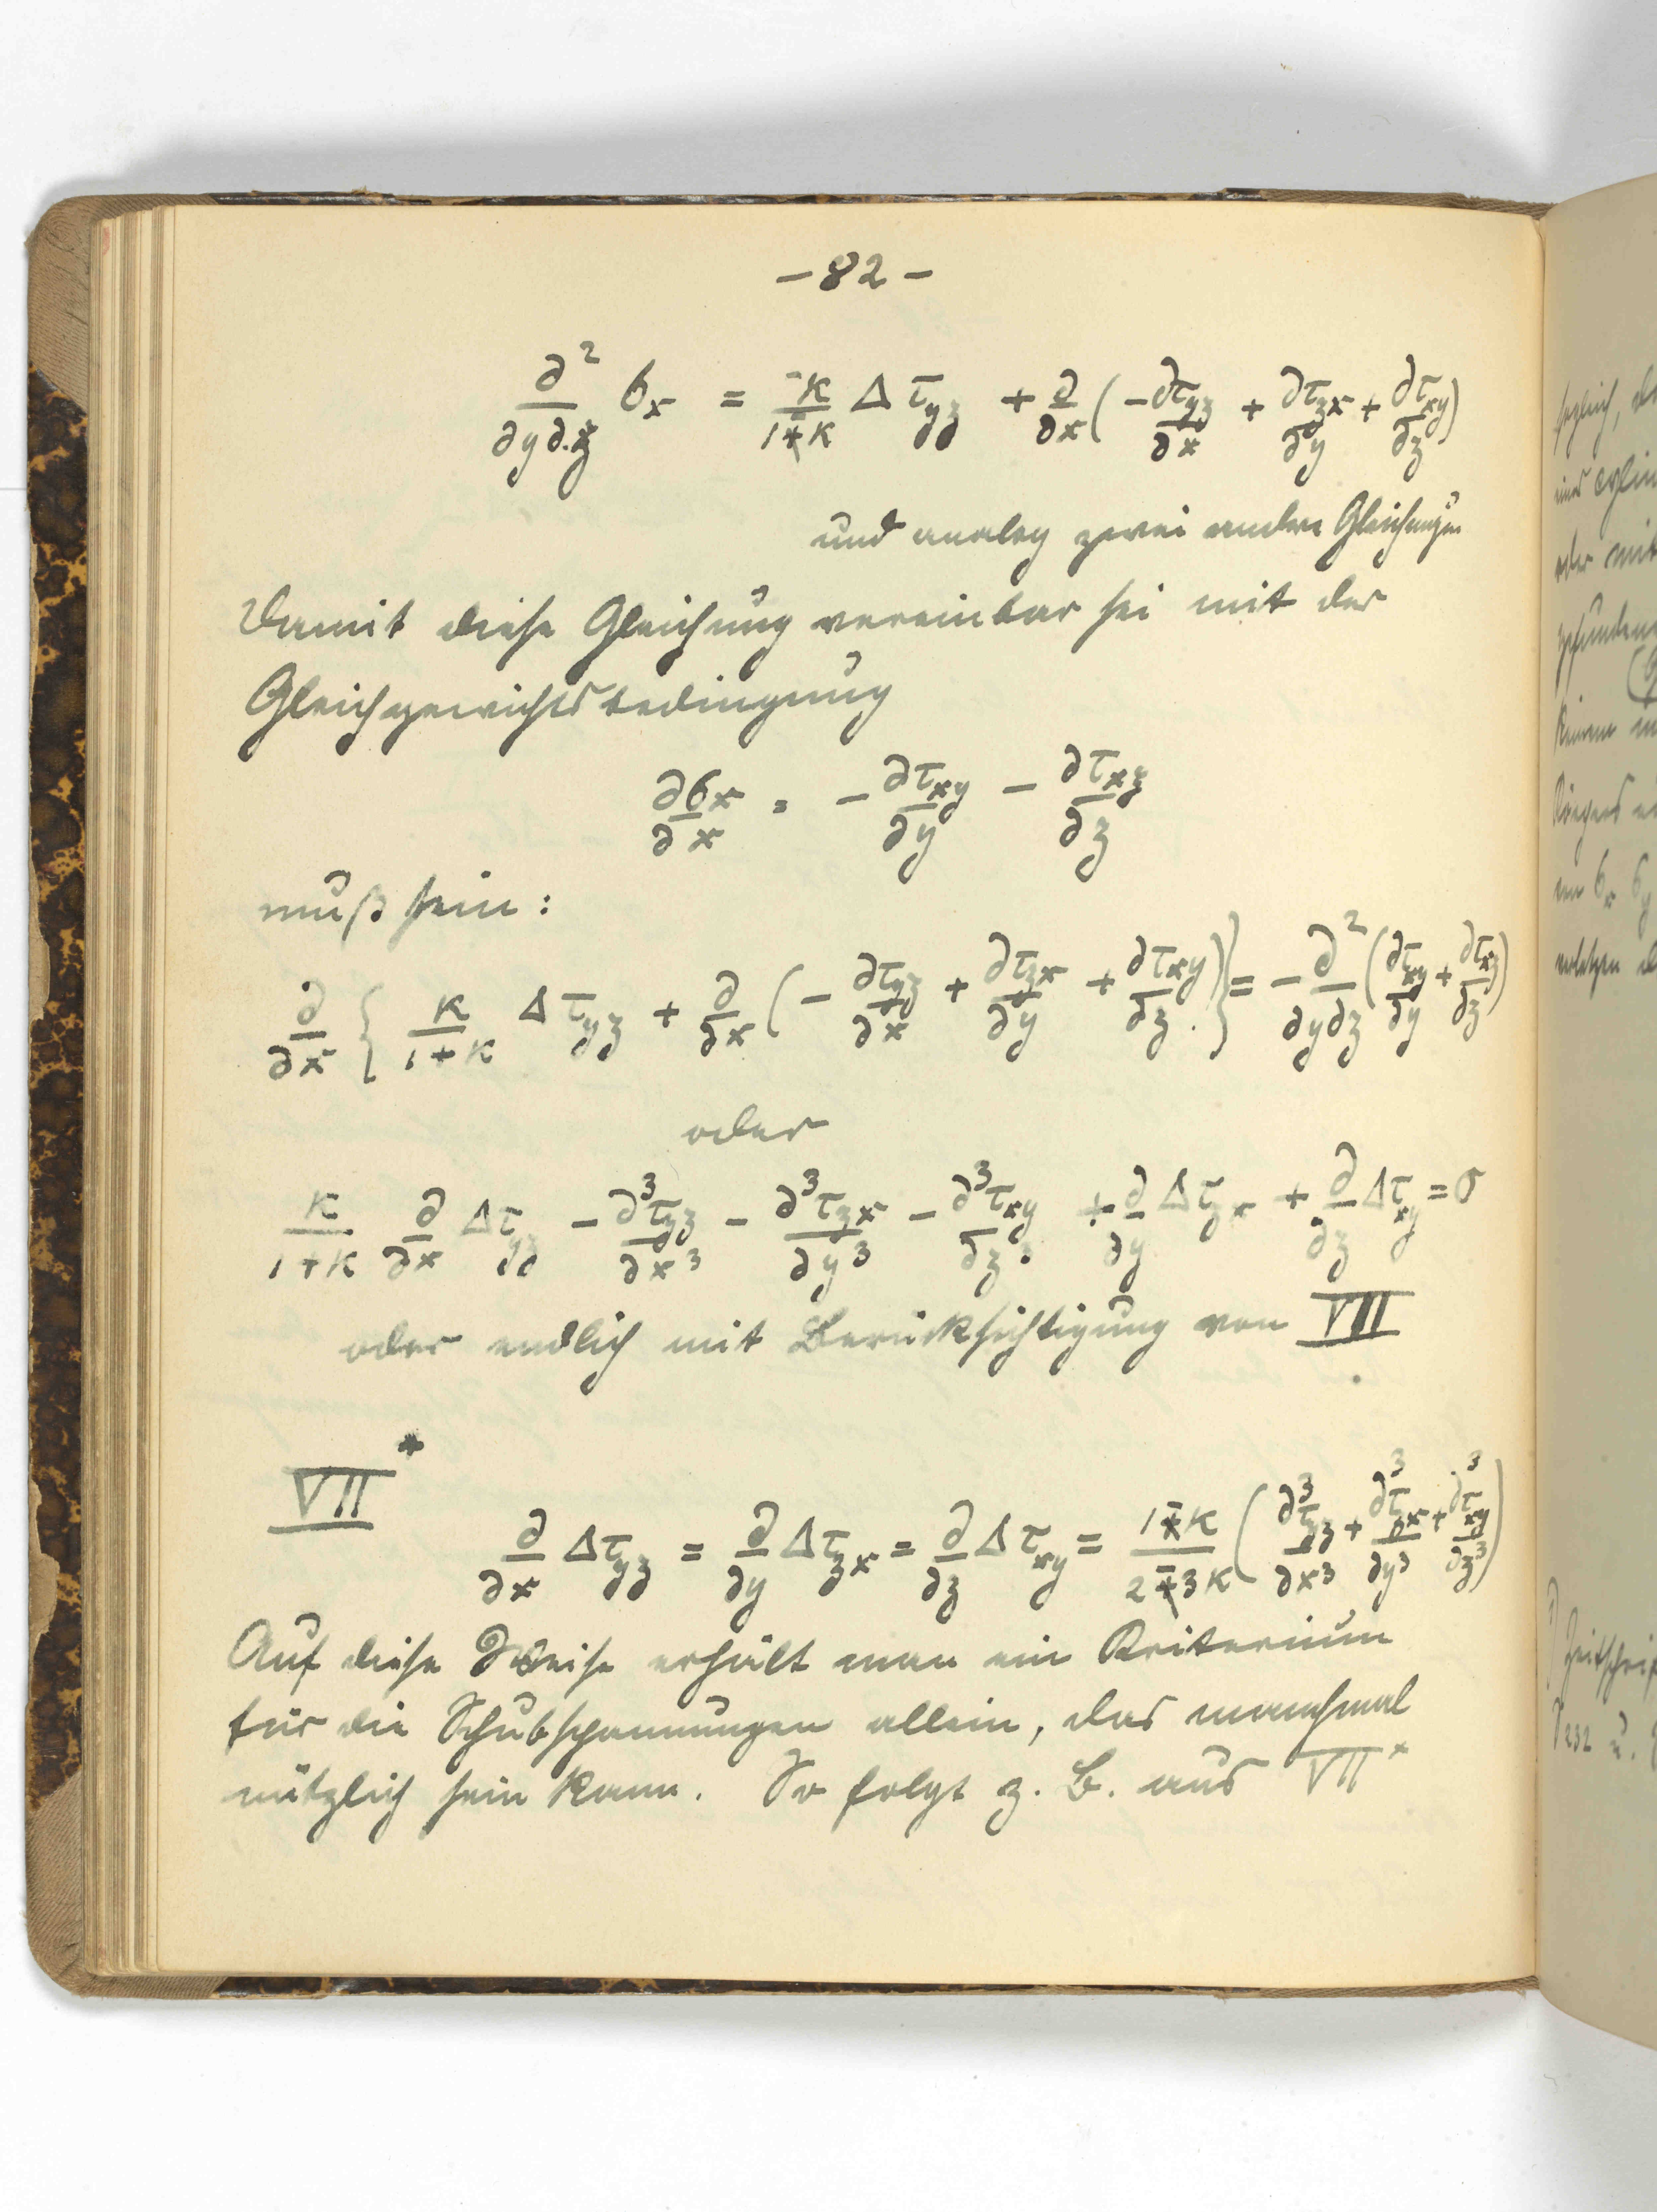 – 82 –
∂²/∂y∂z σx = -K/1∓K Δ τyz + ∂/∂x (– ∂τyz/∂x + ∂τzx/∂y + ∂τxy/∂z)
und analog zwei andere Gleichungen
Damit diese Gleichung vereinbar sei mit der
Gleichgewichtsbedingung
∂σx/∂x = – ∂τxy/∂y – ∂τxz/∂z
muß sein:
∂/∂x { K/1+K Δ τyz + ∂/∂x (– ∂τyz/∂x + ∂τzx/∂y + ∂τxy/∂z) } = – ∂²/∂y∂z (∂τxy/∂y + ∂τxz/∂z)
oder
K/1+K ∂/∂x Δτyz – ∂³τyz/∂x³ – ∂³τzx/∂y³ – ∂³τxy/∂z³ + ∂/∂y Δτzx + ∂/∂z Δτxy = 0
oder endlich mit Berücksichtigung von VII
VII*
∂/∂x Δτyz = ∂/∂y Δτzx = ∂/∂z Δτxy = 1∓K/2∓3K (∂³τyz/∂x³ + ∂³τzx/∂y³ + ∂³τxy/∂z³)
Auf diese Weise erhält man ein Kriterium
für die Schubspannungen allein, das manchmal
nützlich sein kann. So folgt z. B. aus VII*